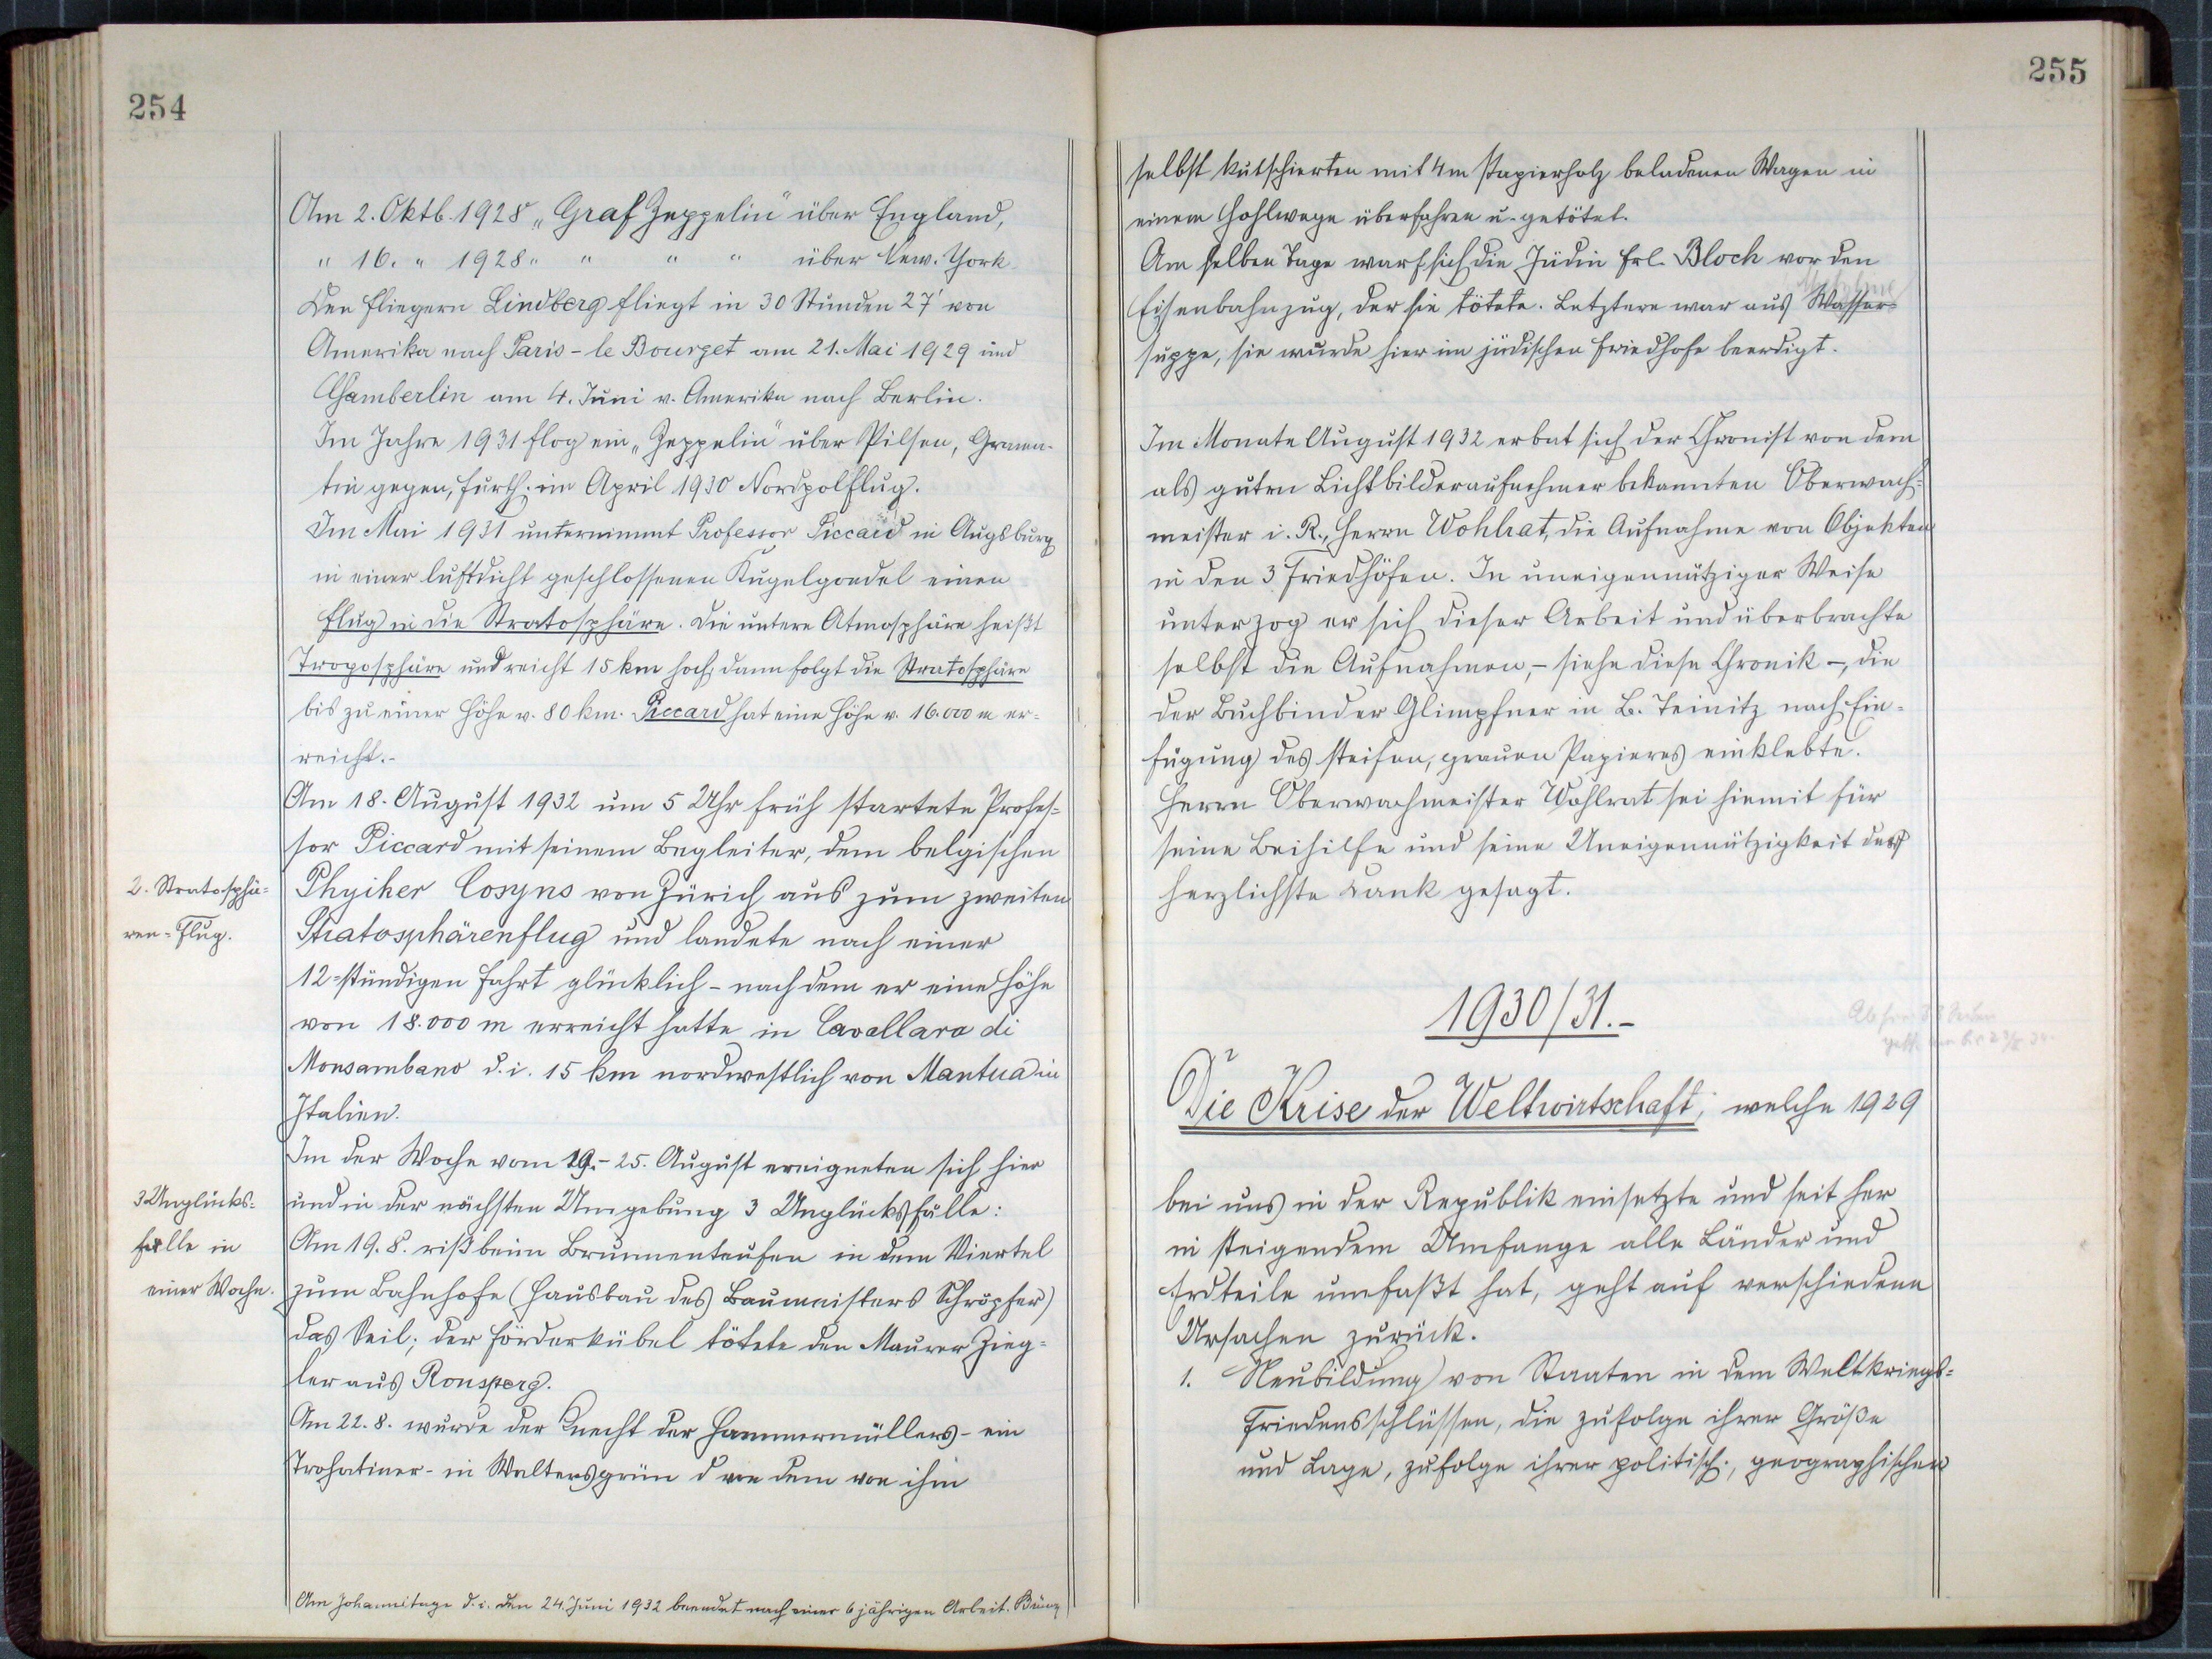 254
Am 2. Oktb. 1928 „Graf Zeppelin" über England,
" 16. " 1928 " " " " über New-York.
Den Fliegern Lindberg fliegt in 30 Stunden 27' von
Amerika nach Paris-le Bourget am 21. Mai 1929 und
Chamberlin am 4. Juni v. Amerika nach Berlin.
Im Jahre 1931 flog ein „Zeppelin" über Pilsen, Gramm-
tin gegen, Furth. im April 1930 Nordpolflug.
Im Mai 1931 unternimmt Professor Piccard in Augsburg
in einer luftdicht geschlossenen Kugelgondel einen
Flug in die Stratosphäre. Die untere Atmosphäre heißt
Troposphäre und reicht 15 km hoch, dann folgt die Stratosphäre
bis zu einer Höhe v. 80 km. Piccard hat eine Höhe v. 16.000 m er-
reicht.-
Am 18. August 1932 um 5 Uhr früh startete Profes-
sor Piccard mit seinem Begleiter, dem belgischen
2. Stratosphä-
Phyiker Cosyns von Zürich aus zum zweiten
ren-Flug.
Stratosphärenflug und landete nach einer
12-stündigen Fahrt glücklich - nachdem er eine Höhe
von 18.000 m erreicht hatte in Cavallara di
Monsambano d. i. 15 km nordwestlich von Mantua in
Italien.
Im der Woche vom 19.-25. August ereigneten sich hier
3 Unglücks-
und in der nächsten Umgebung 3 Unglücksfälle:
fälle in
Am 19. 8. riß beim Brunnenteufen in dem Viertel
einer Woche.
zum Bahnhofe (Hausbau des Baumeisters Schröpfer)
das Seil; der Förderkübel tötete den Maurer Zieg-
ler aus Ronsperg.
Am 22. 8. wurde der Knecht der Hammermüllers - ein
Trohatiner - in Waltersgrün d von dem von ihm
Am Johannitage d. i. den 24. Juni 1932 beendet nach einer 6 jährigen Arbeit.
255
selbst kutschierten mit 4 m Papierholz beladenen Wagen in
einem Hohlwege überfahren u. getötet.
Am selben Tage warf sich die Jüdin Frl. Bloch vor den
Eisenbahnzug, der sie tötete. Letztere war aus Wasser-
suppe, sie wurde hier im jüdischen Friedhofe beerdigt.
Im Monate August 1932 erbat sich der Chronist von dem
als guten Lichtbilderaufnehmer bekannten Oberwach-
meister i. R., Herrn Wohlrat, die Aufnahme von Objekten
in den 3 Friedhöfen. In uneigennütziger Weise
unterzog er sich dieser Arbeit und überbrachte
selbst die Aufnahmen, - siehe diese Chronik -, die
der Buchbinder Glimpfner in B. Teinitz nach Ein-
fügung des steifen, grauen Papieres einklebte.
Herrn Oberwachmeister Wohlrat sei hiemit für
seine Beihilfe und seine Uneigennützigkeit der
herzlichste Dank gesagt.
1930/31.-
Die Krise der Weltwirtschaft, welche 1929
bei uns in der Republik einsetzte und seit her
in steigendem Umfange alle Länder und
Erdteile umfaßt hat, geht auf verschiedene
Ursachen zurück.
1. Neubildung von Staaten in dem Weltkriegs-
Friedensschlüssen, die zufolge ihrer Größe
und Lage, zufolge ihrer politisch., geographischen